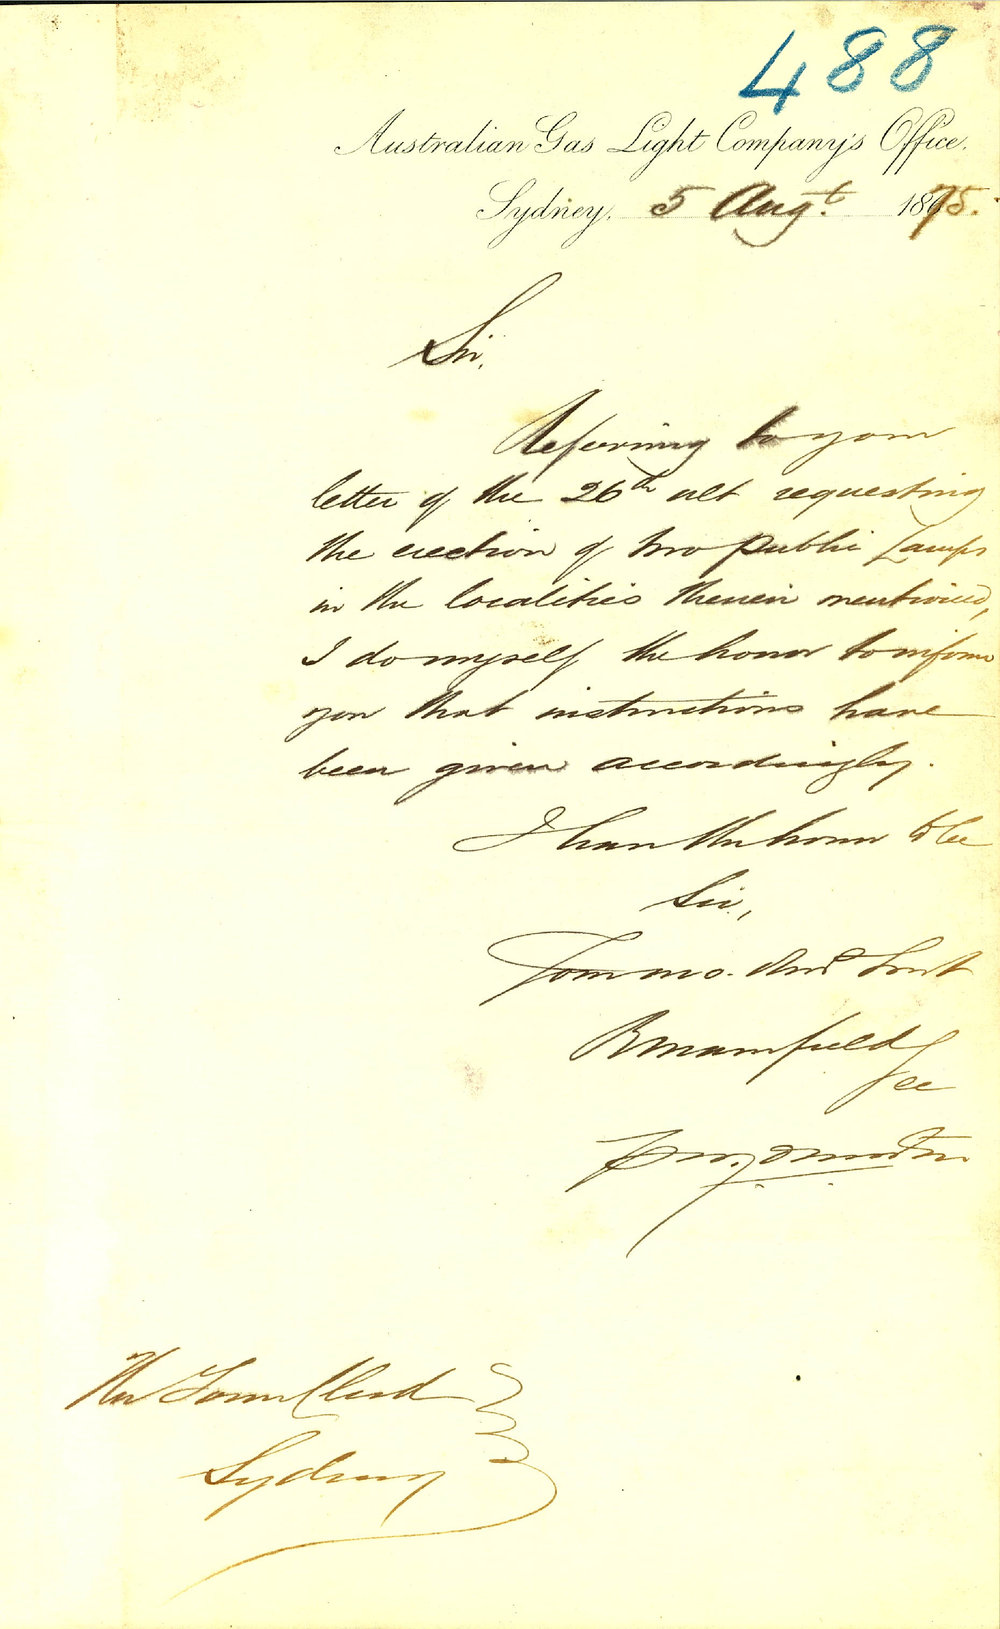 488
Australian Gas Light Company's Office.
Sydney, 5 Augt. 1875.
Sir,
Referring to your
letter of the 26th ult requesting
the erection of two public Lamps
in the localities therein mentioned,
I do myself the honor to inform
you that instructions have
been given accordingly.
I have the honor to be
Sir,
Your mo. Obd Servt
R Mansfield
Sec
The Town Clerk
Sydney